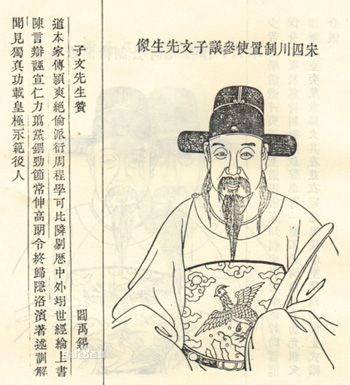 宋四川制置使參議子文先生像
子文先生贊
閻禹錫
道本家傳穎爽絕倫派衍周程學可比隣剔歷中外翊世經綸上書
陳言辯誣宣仁力剪黨錮勁節常伸高朗令終歸隱洛濱著述訓解
聞見獨真功載皇極永範後人